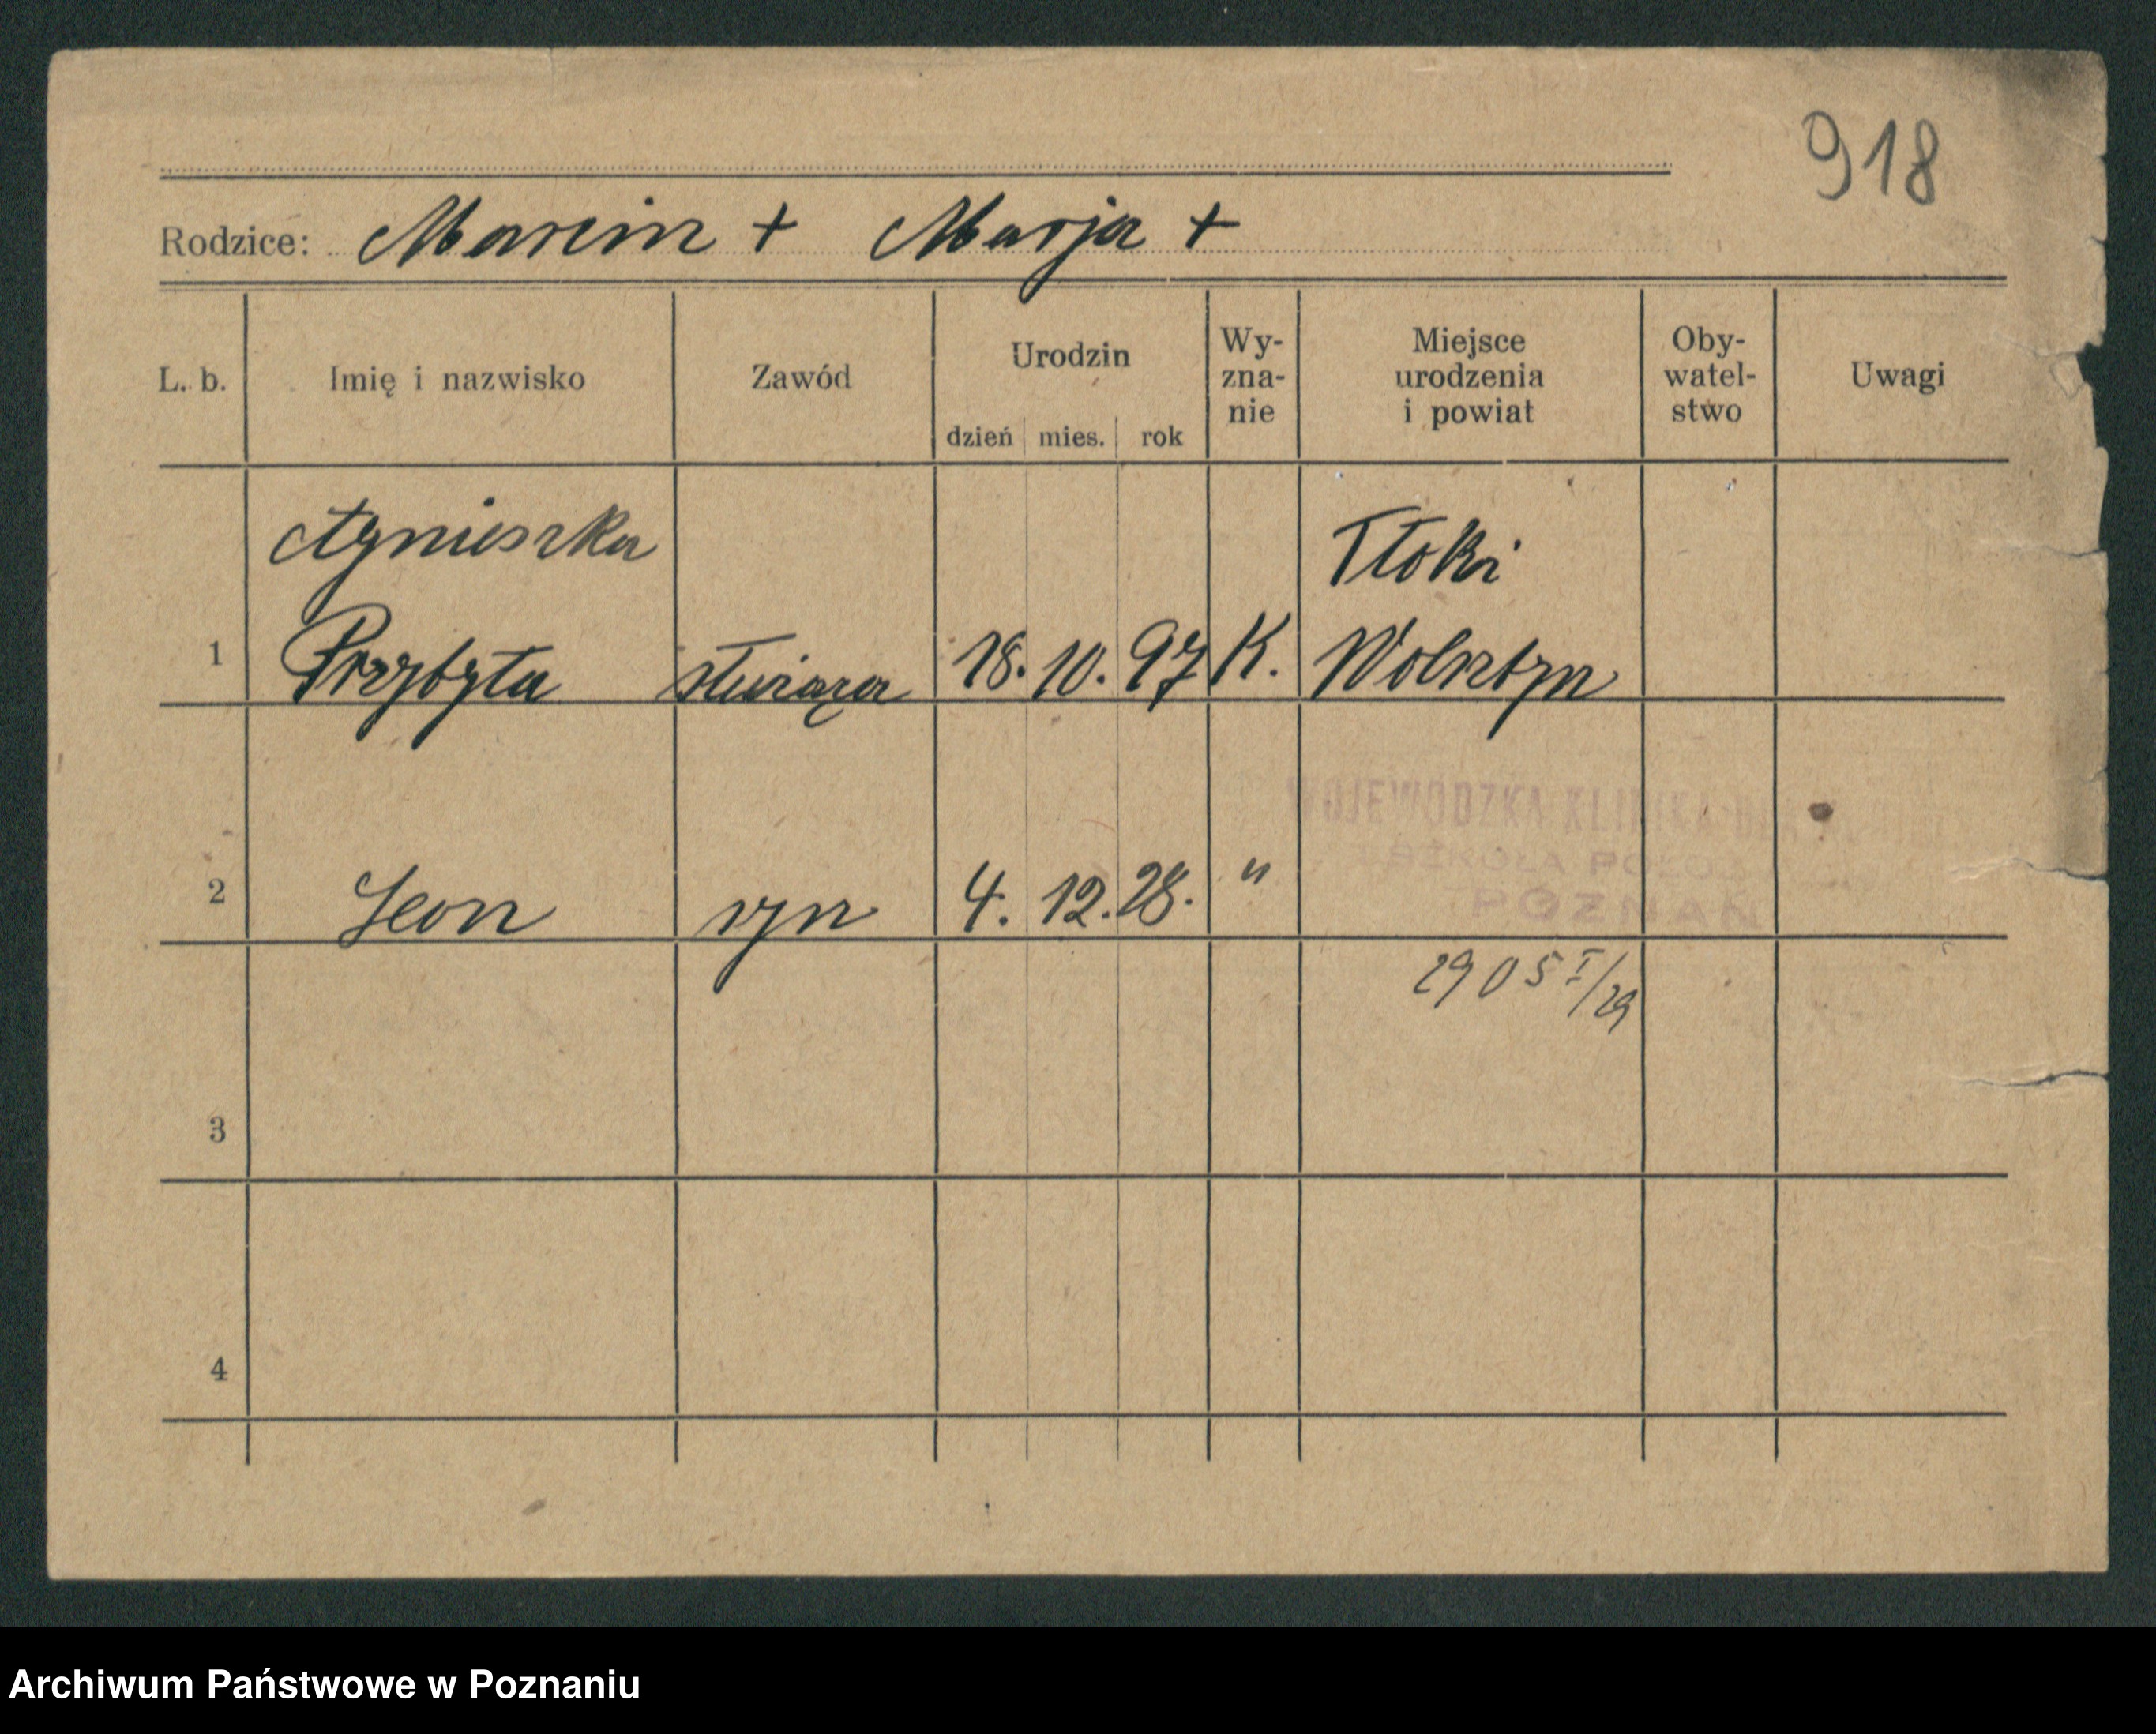 918
Rodzice: Marcin + Marja +
L. b. Imię i nazwisko Zawód Urodzin Wy- zna- nie Miejsce urodzenia i powiat Oby- watel- stwo Uwagi
dzień mies. rok
Agnieszka Tłoki
1 Przybyła służąca 18. 10. 97 K. Wolsztyn
WOJEWÓDZKA KLINIKA
I SZKOŁA POŁOŻ
2 Leon syn 4. 12. 28. "
POZNAŃ
2905 I/29
3
4
Archiwum Państwowe w Poznaniu